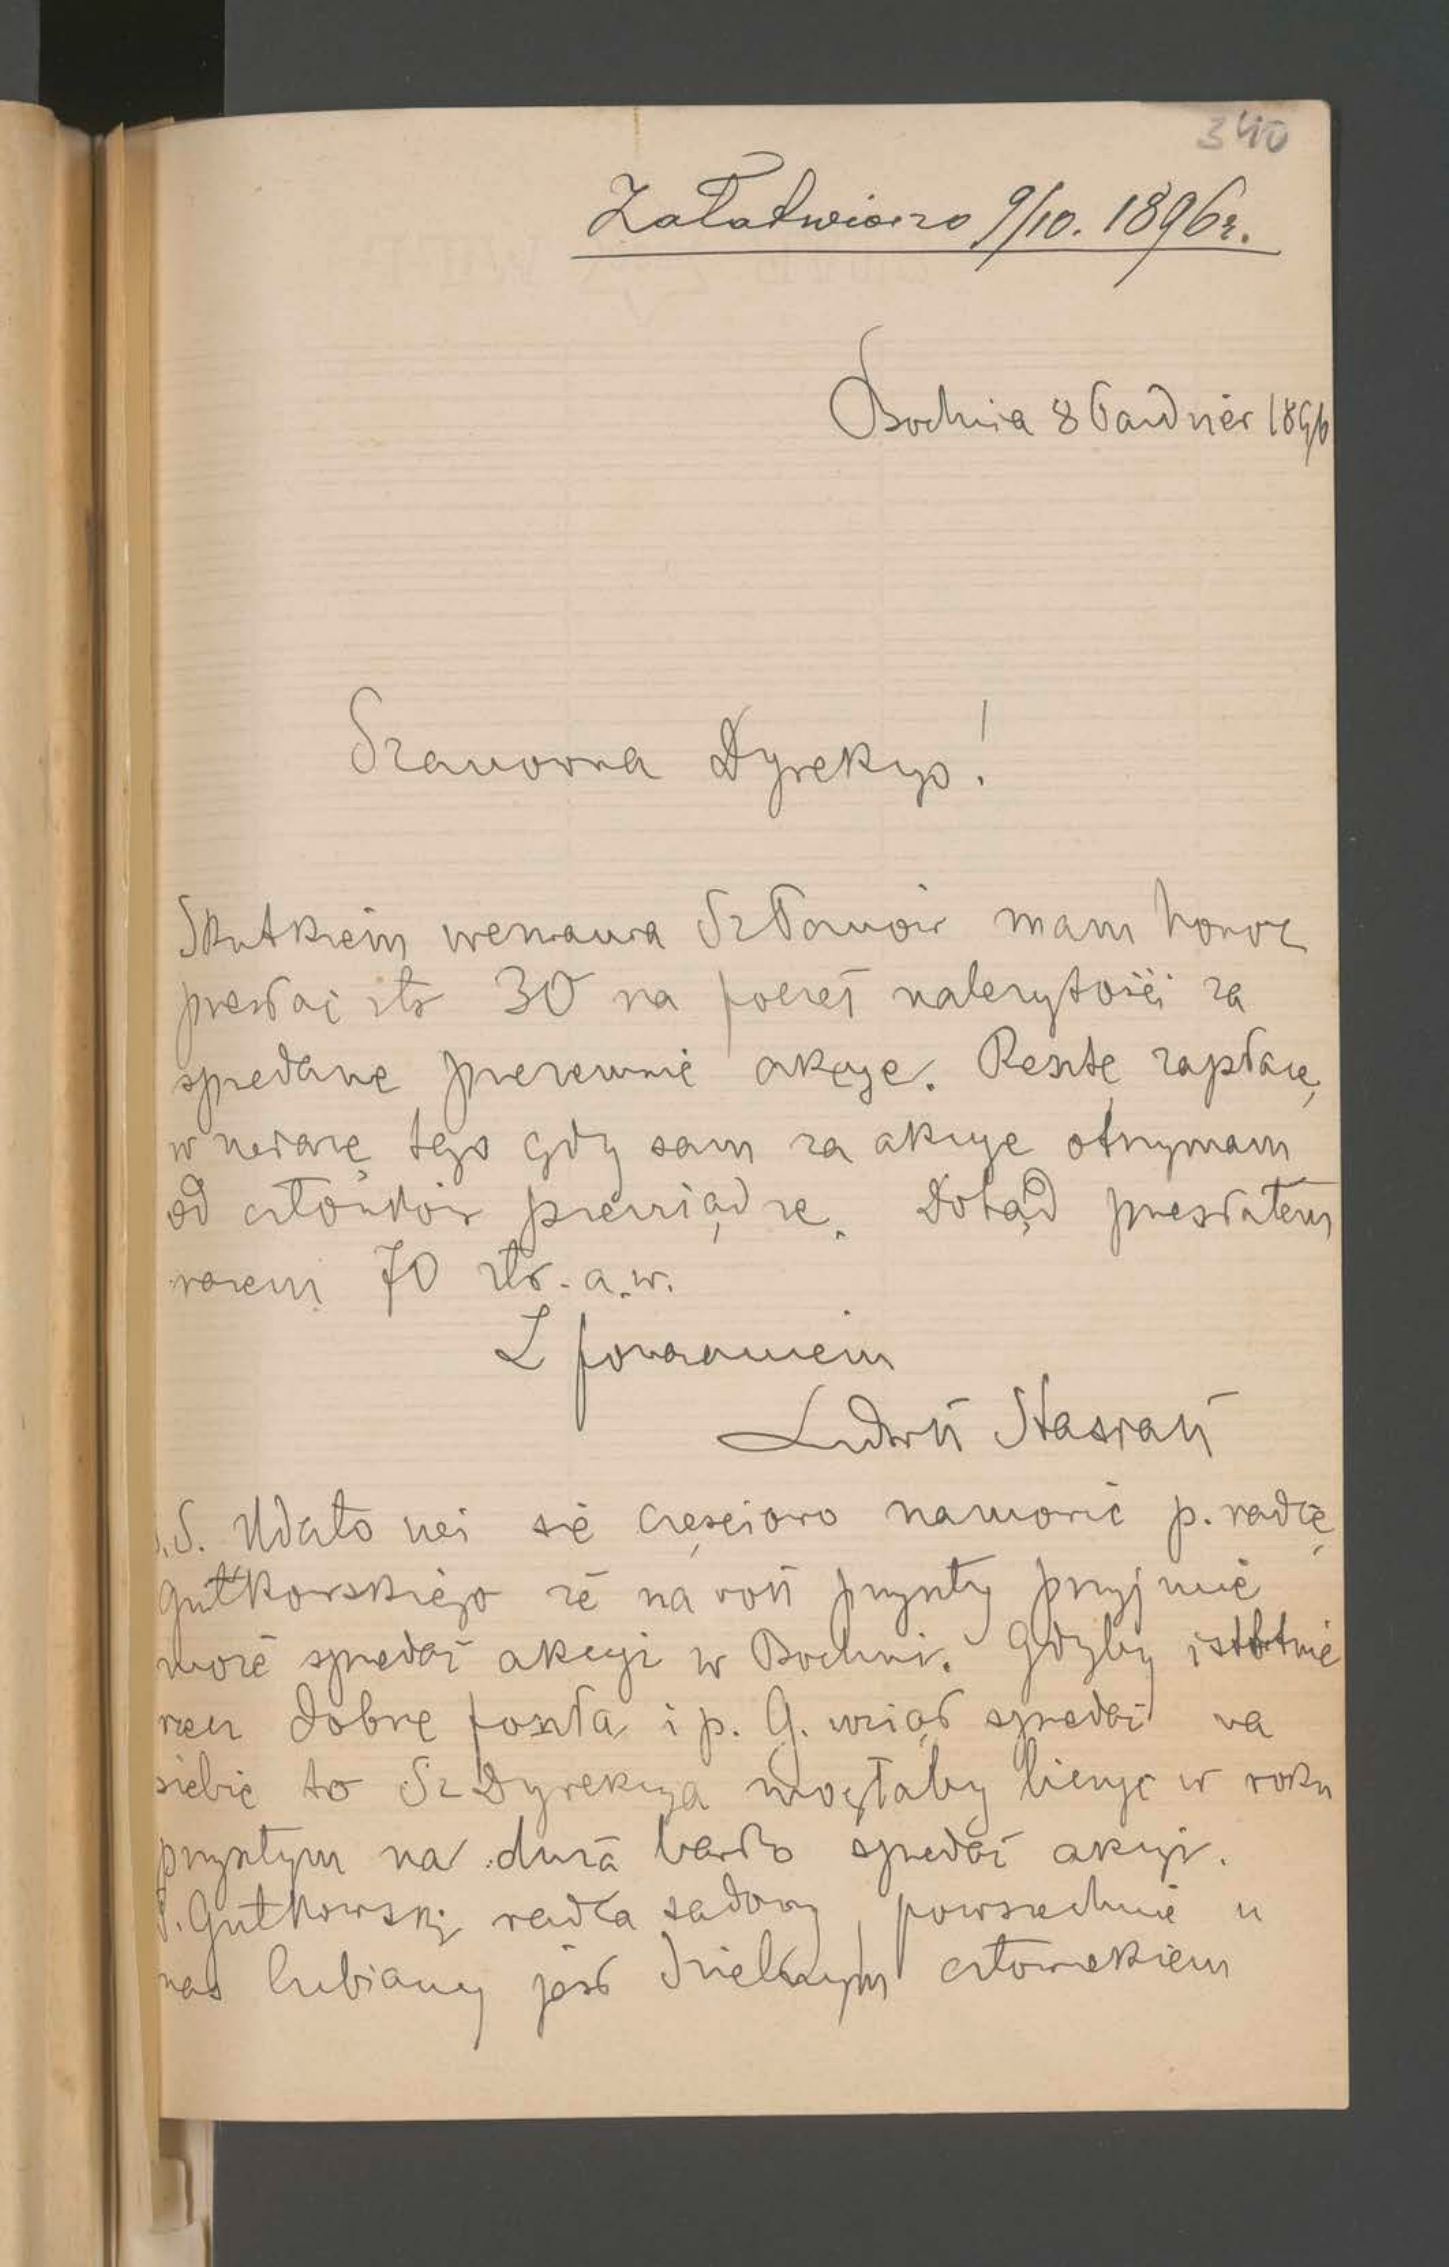 340
Załatwiono 9/10. 1896 r.
Bochnia 8 Paździer 1896
Szanowna Dyrekcyo!
Skutkiem wezwania Sz Panów mam honor
przesłać złr 30 na poczet należytości za
sprzedane przezemnie akcye. Resztę zapłacę,
w miarę tego gdy sam za akcye otrzymam
od członków pieniądze. Dotąd przesłałem
razem 70 złr. a.w.
Z poważaniem
Ludwik Stasiak
P.S. Udało mi się częściowo namówić p. radcę
Gutkowskiego że na rok przyszły przyjmie
może sprzedaż akcyi w Bochni. Gdyby istotnie
rzecz dobrze poszła i p. G. wziął sprzedaż na
siebie to Sz Dyrekcya mogłaby liczyć w roku
przyszłym na dużą bardzo sprzedaż akcyi.
P. Gutkowski radca sądowy, powszechnie u
nas lubiany jest dzielnym człowiekiem